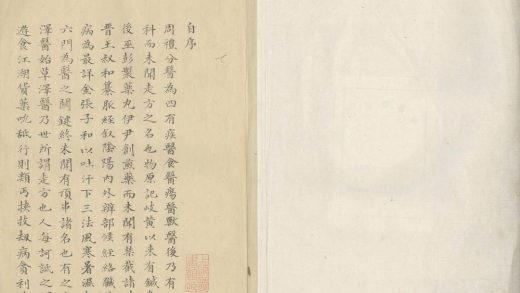 自序
周禮分醫為四有疾醫食醫瘍醫獸醫後乃有
科而未聞走方之名也物原記岐黃以來有鍼灸
後巫彭製藥丸伊尹創煎藥而未聞有禁截諸
晉王叔和纂脈經敘陰陽內外辨部候經絡臟
病為最詳金張子和以吐汗下三法風寒暑濕
六門為醫之關鍵終未聞有頂串諸名也有之
澤醫始草澤醫乃世所謂走方也人每訶誚之
遊食江湖貨藥吮舐行則類丐挾技劫病貪利